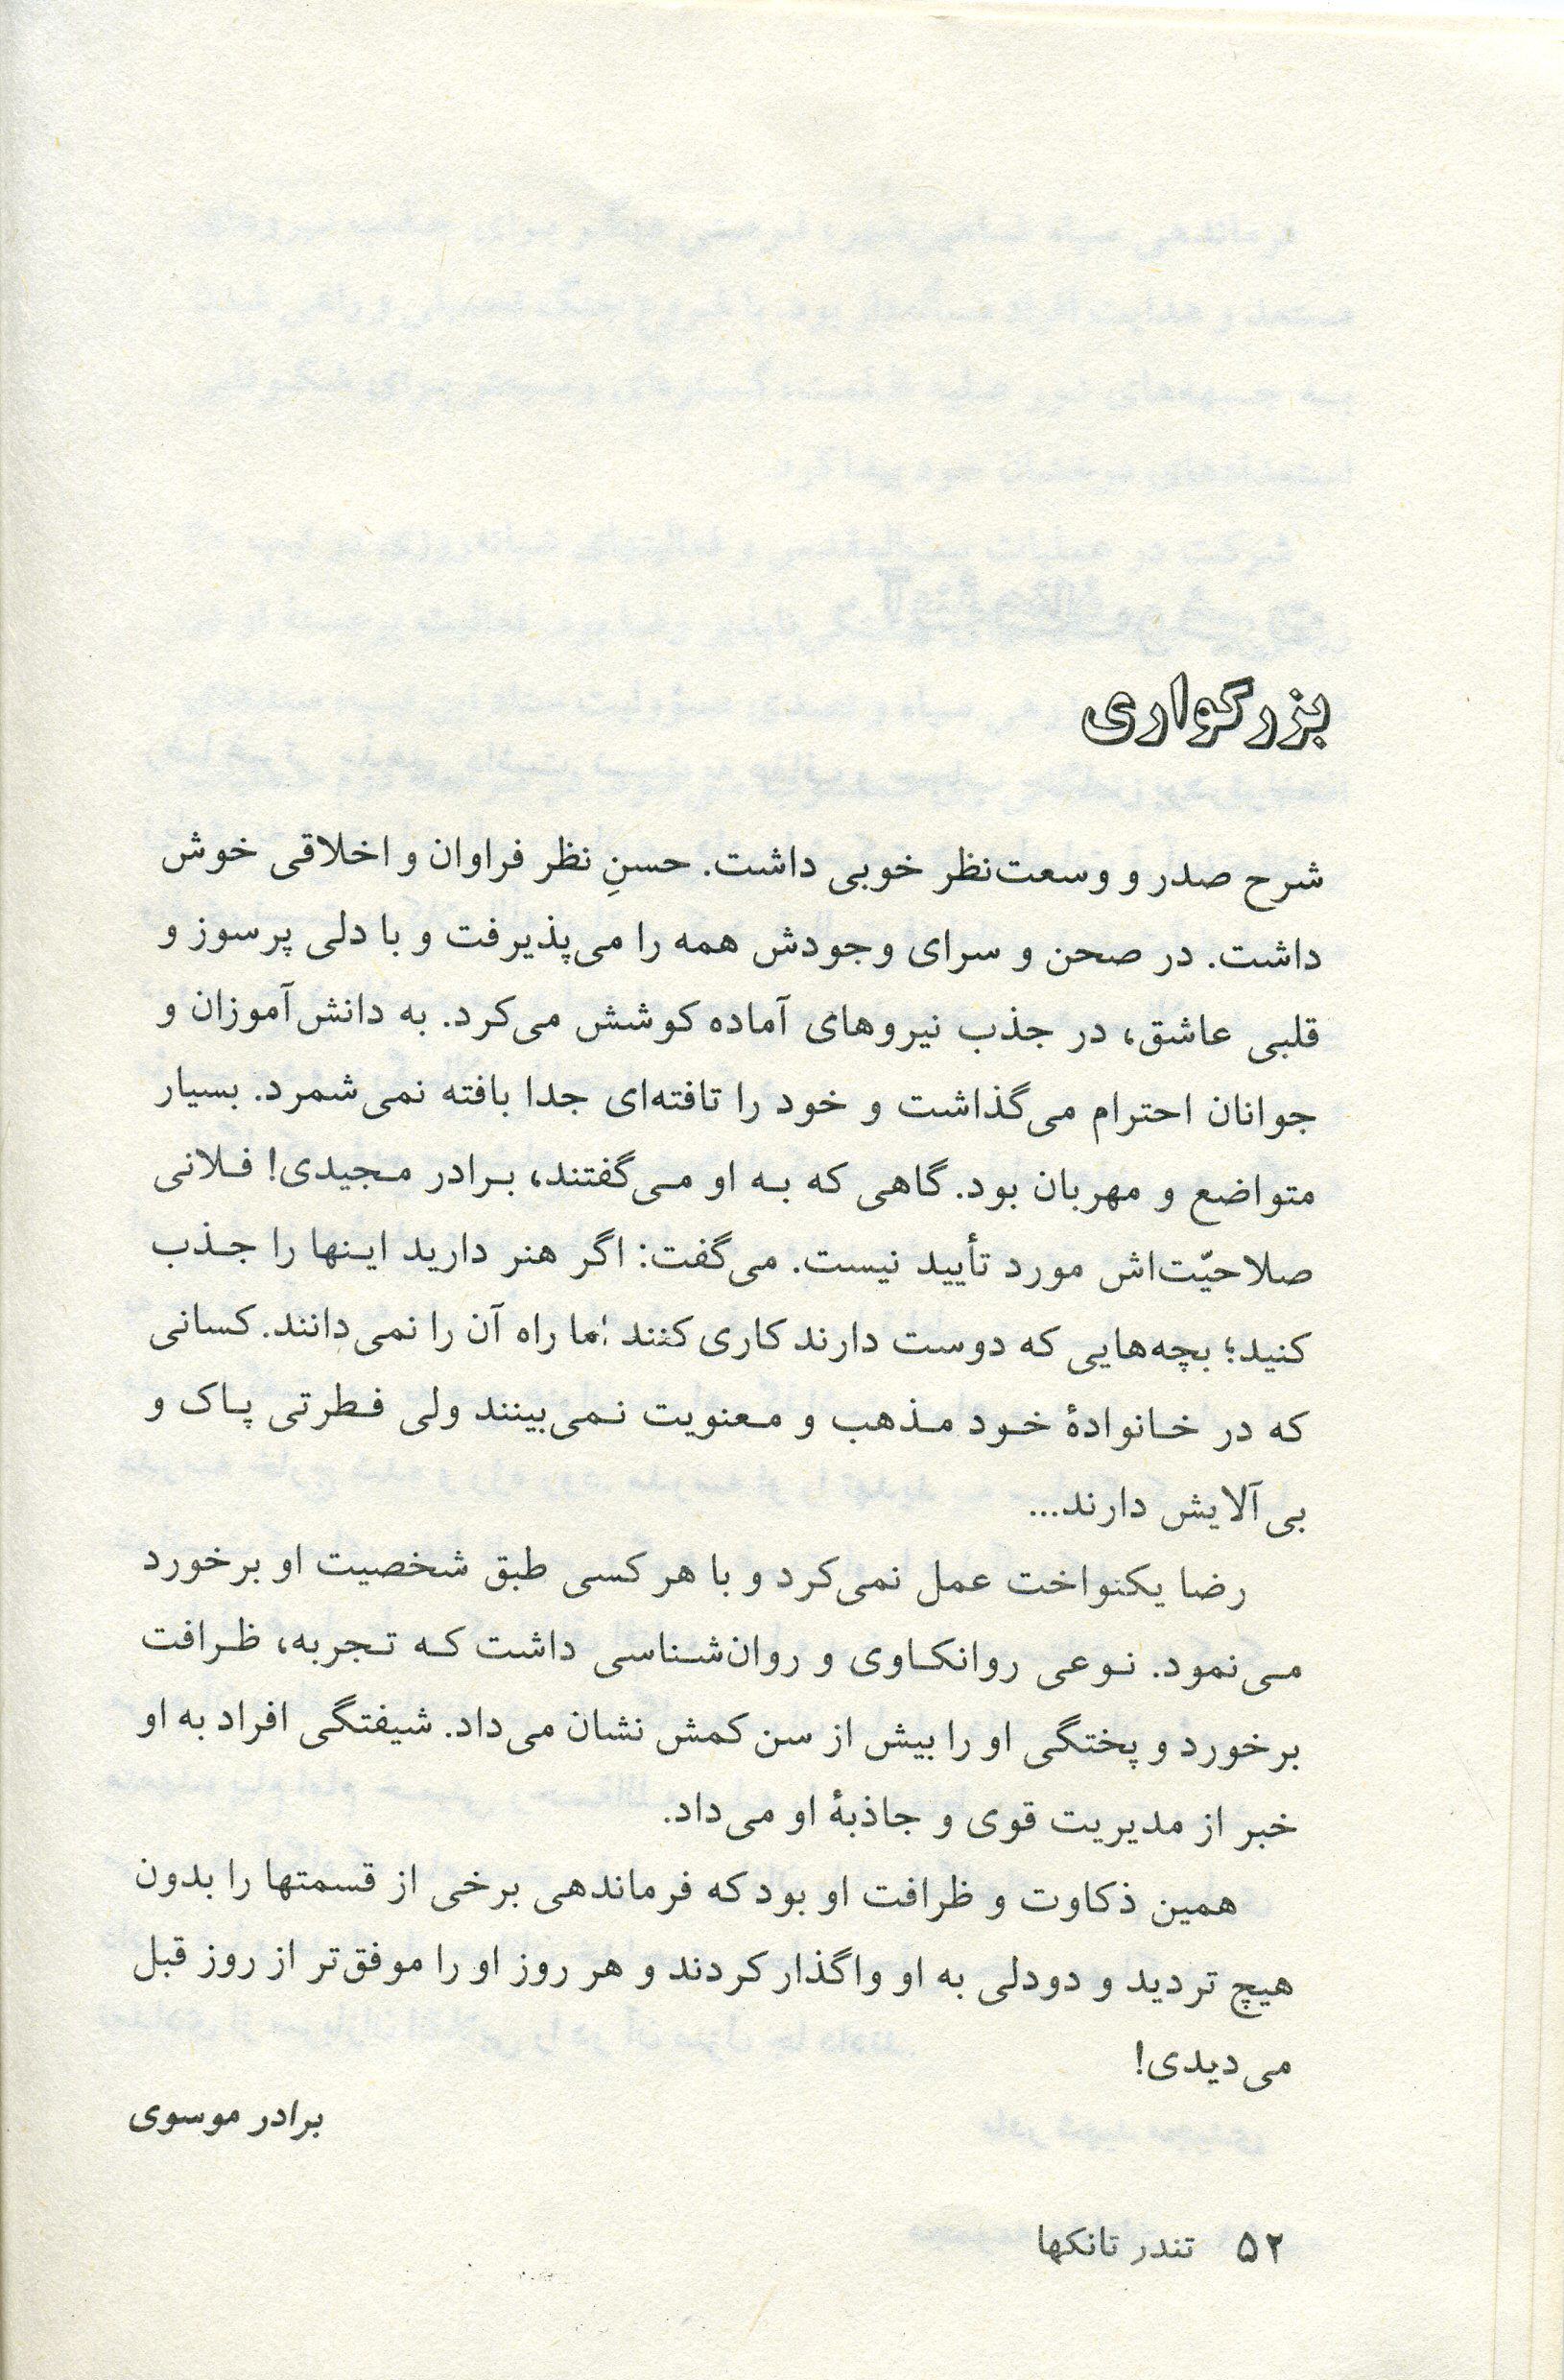 بزرگواری
شرح صدر و وسعت‌نظر خوبی داشت. حسنِ نظر فراوان و اخلاقی خوش
داشت. در صحن و سرای وجودش همه را می‌پذیرفت و با دلی پرسوز و
قلبی عاشق، در جذب نیروهای آماده کوشش می‌کرد. به دانش‌آموزان و
جوانان احترام می‌گذاشت و خود را تافته‌ای جدا بافته نمی‌شمرد. بسیار
متواضع و مهربان بود. گاهی که به او می‌گفتند، برادر مجیدی! فلانی
صلاحیّت‌اش مورد تأیید نیست. می‌گفت: اگر هنر دارید اینها را جذب
کنید؛ بچه‌هایی که دوست دارند کاری کنند اما راه آن را نمی‌دانند. کسانی
که در خانوادهٔ خود مذهب و معنویت نمی‌بینند ولی فطرتی پاک و
بی‌آلایش دارند...
رضا یکنواخت عمل نمی‌کرد و با هر کسی طبق شخصیت او برخورد
می‌نمود. نوعی روانکاوی و روان‌شناسی داشت که تجربه، ظرافت
برخورد و پختگی او را بیش از سن کمش نشان می‌داد. شیفتگی افراد به او
خبر از مدیریت قوی و جاذبهٔ او می‌داد.
همین ذکاوت و ظرافت او بود که فرماندهی برخی از قسمتها را بدون
هیچ تردید و دودلی به او واگذار کردند و هر روز او را موفق‌تر از روز قبل
می‌دیدی!
برادر موسوی
۵۲ تندر تانکها